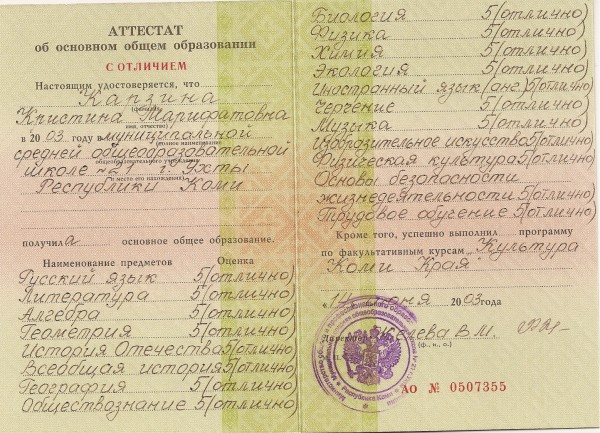 АТТЕСТАТ
об основном общем образовании
С ОТЛИЧИЕМ
Настоящим удостоверяется, что
Капзина
(фамилия)
Кристина Марифатовна
(имя, отчество)
в 2003 году в муниципальной
(полное наименование
средней общеобразовательной
общеобразовательного учреждения
школе №21 г. Ухты
и место его нахождения)
Республики Коми
получила основное общее образование.
Наименование предметов Оценка
Русский язык 5(отлично)
Литература 5(отлично)
Алгебра 5(отлично)
Геометрия 5(отлично)
История Отечества 5(отлично)
Всеобщая история 5(отлично)
География 5(отлично)
Обществознание 5(отлично)
Биология 5(отлично)
Физика 5(отлично)
Химия 5(отлично)
Экология 5(отлично)
Иностранный язык (анг.) 5(отлично)
Черчение 5(отлично)
Музыка 5(отлично)
Изобразительное искусство 5(отлично)
Физическая культура 5(отлично)
Основы безопасности
жизнедеятельности 5(отлично)
Трудовое обучение 5(отлично)
Кроме того, успешно выполнила программу
по факультативным курсам "Культура
Коми Края"
"14 июня 2003 года
Директор В.М.
(ф., и., о.)
АО № 0507355